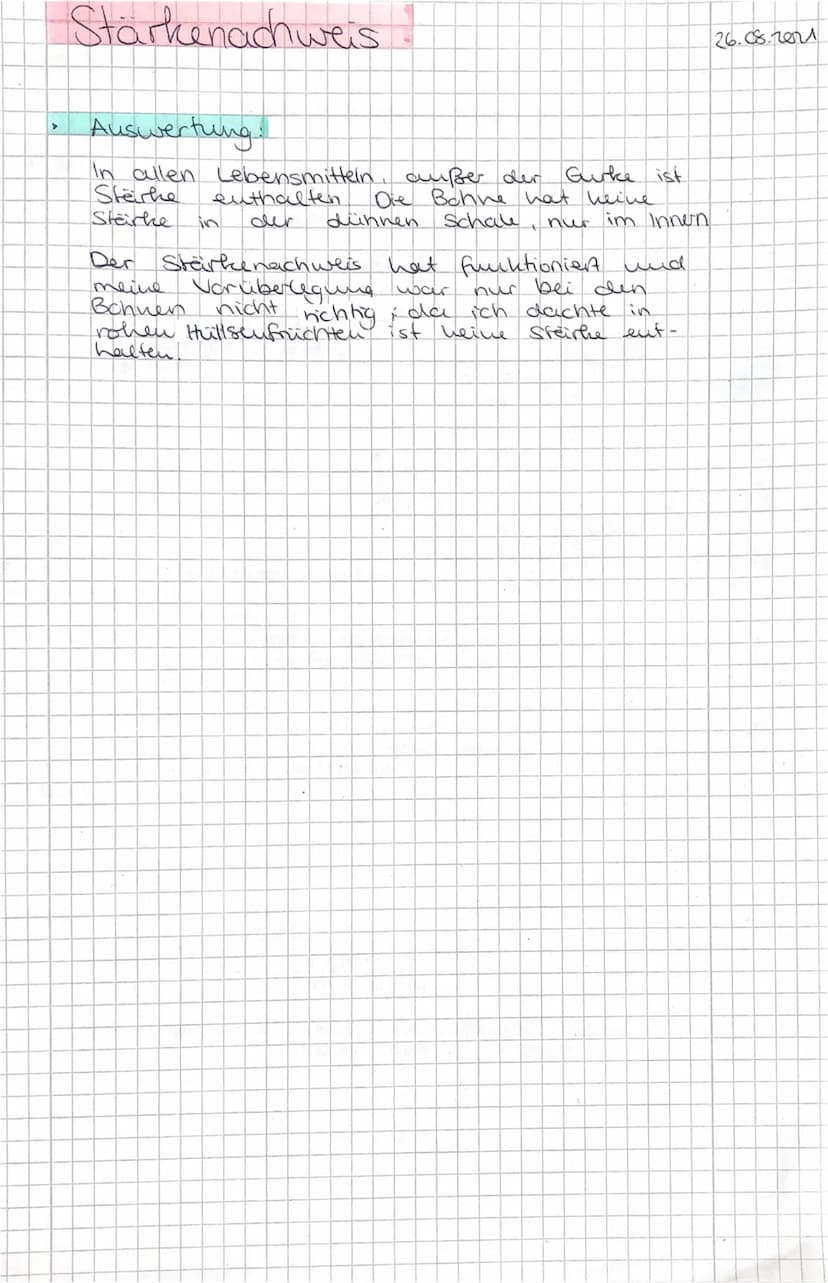 Stärkenachweis
26.08.2021
Auswertung:
In allen Lebensmitteln, außer der Gurke ist
Stärke enthalten. Die Bohne hat keine
Stärke in der dünnen Schale, nur im Innern
Der Stärkenachweis hat funktioniert und
meine Vorüberlegung war nur bei den
Bohnen nicht richtig, da ich dachte in
rohen Hüllsenfrüchten ist keine Stärke ent-
halten.